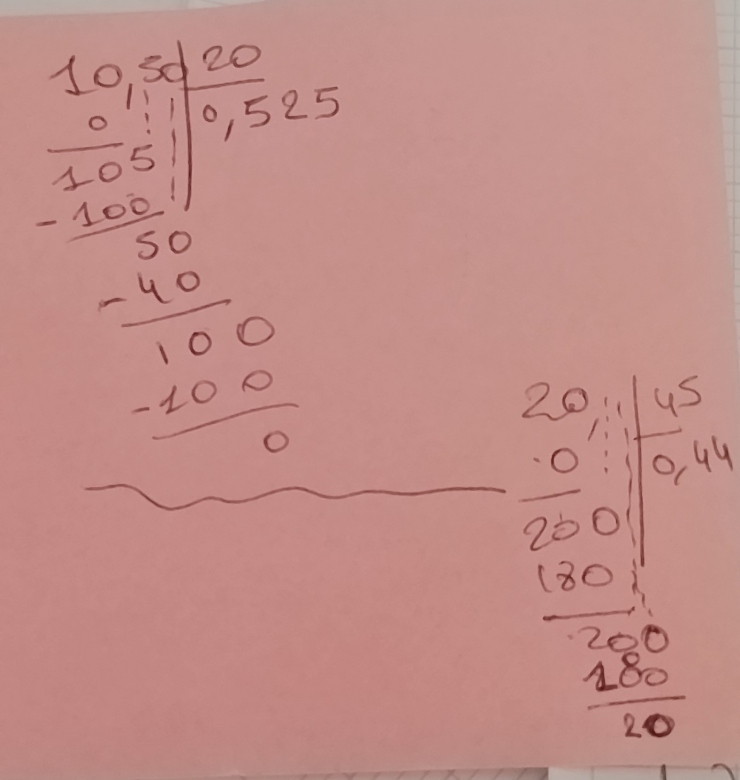 10,50 20
0 0,525
105
-100
50
-40
100
-100
0
20, 45
0 0,44
200
180
200
180
20